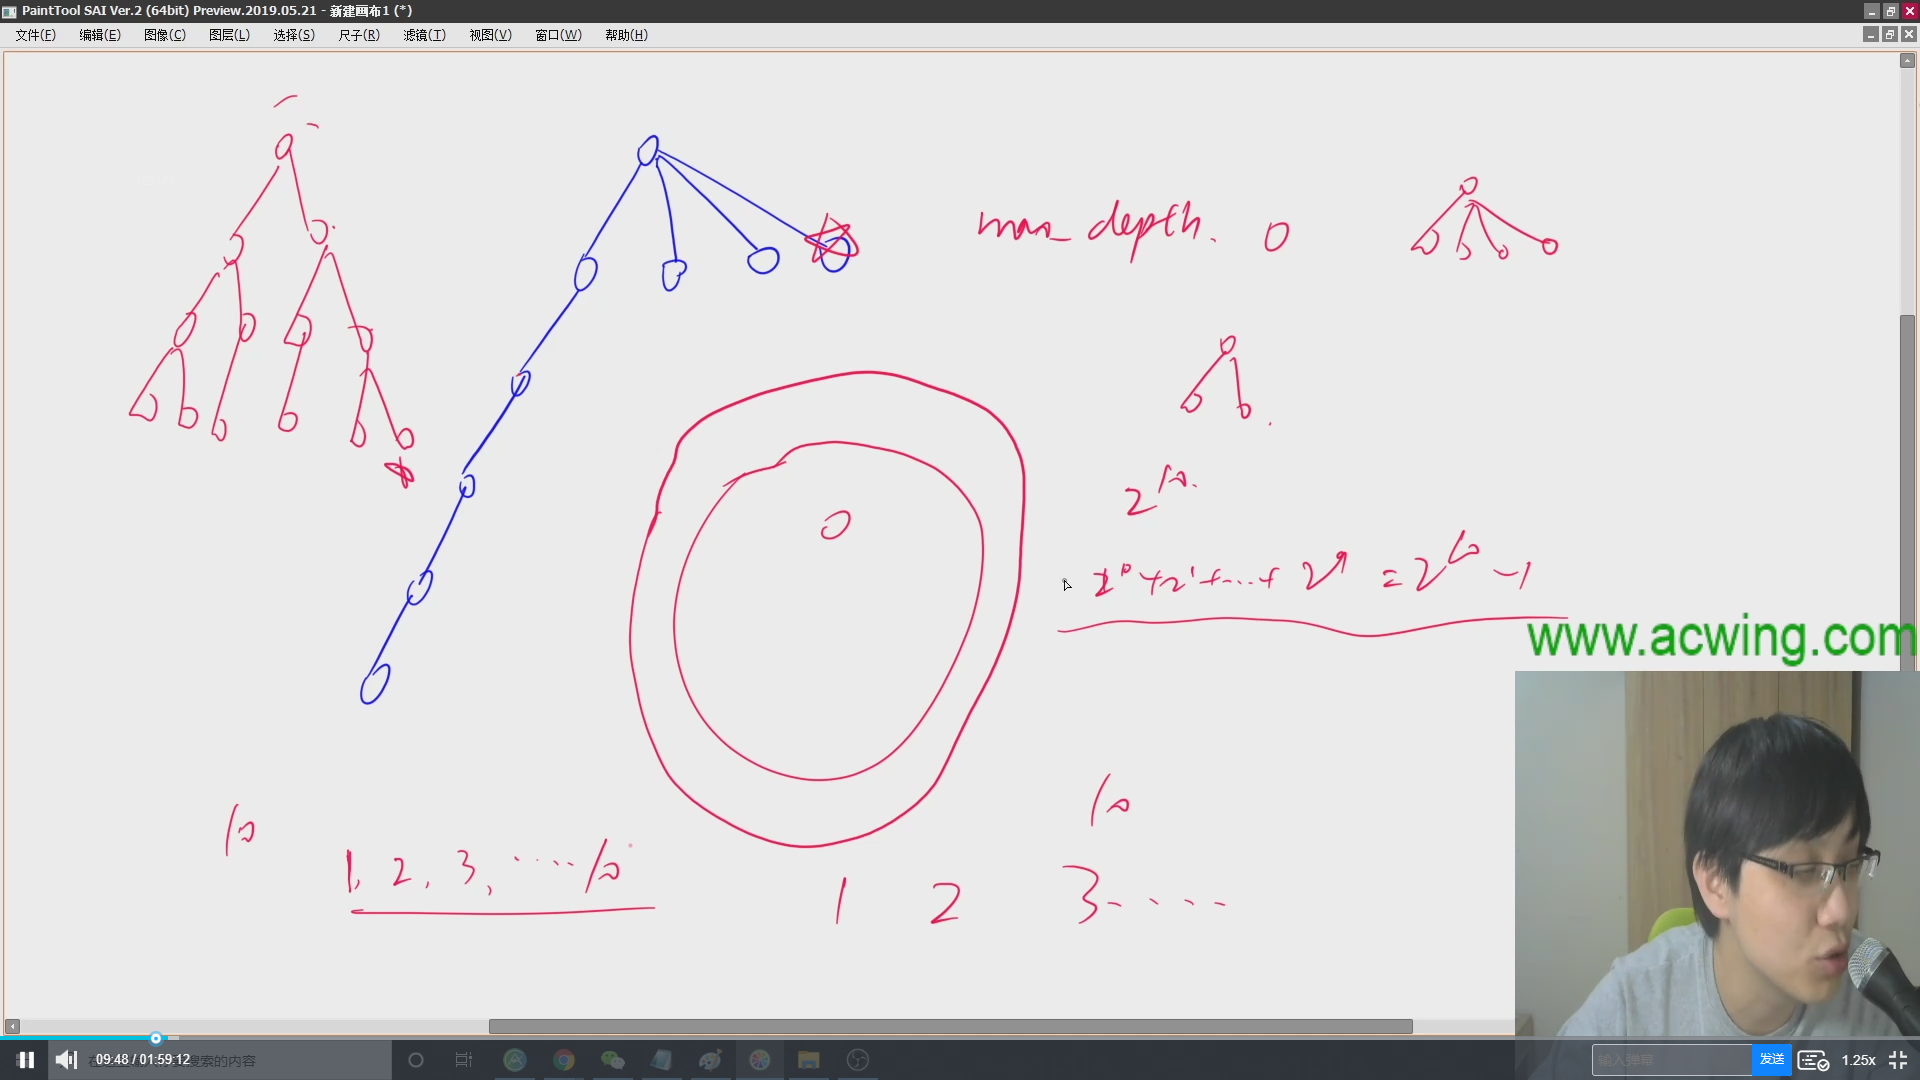 PaintTool SAI Ver.2 (64bit) Preview.2019.05.21 - 新建画布1 (*)
文件(F) 编辑(E) 图像(C) 图层(L) 选择(S) 尺子(R) 滤镜(T) 视图(V) 窗口(W) 帮助(H)
max_depth. 0
2^10.
2^0+2^1+...+2^9=2^10-1
www.acwing.com
10
10
1, 2, 3, ..... 10
1 2 3....
09:48 / 01:59:12
搜索的内容
输入弹幕
发送
1.25x